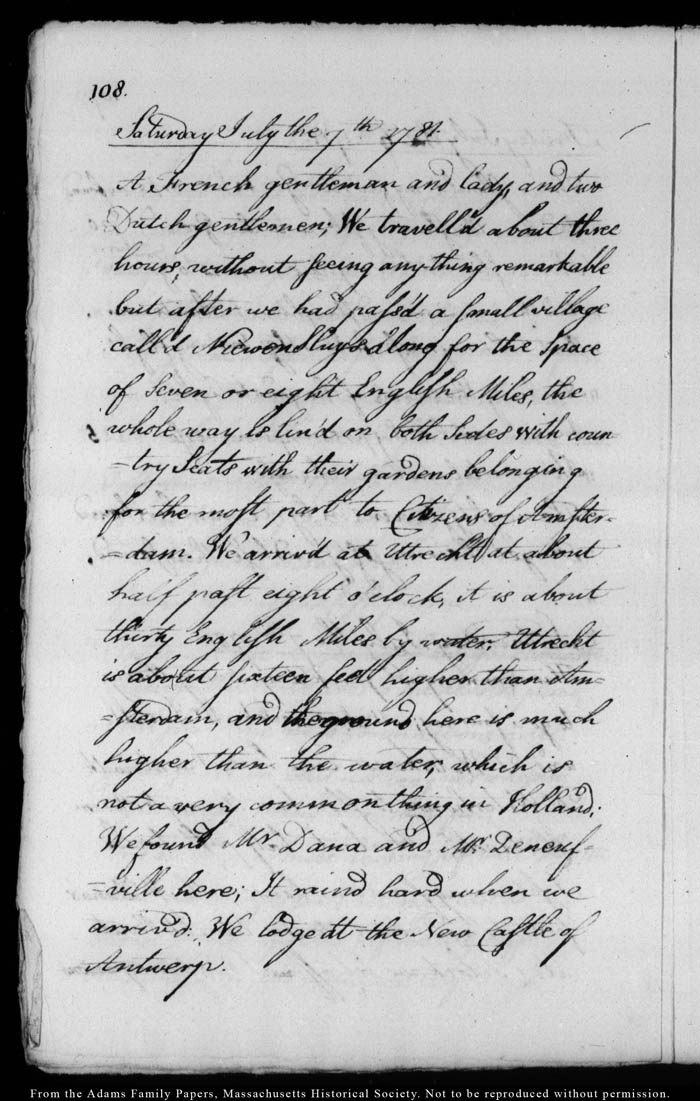 108.
Saturday July the 7th 1781.
A French gentleman and lady, and two
Dutch gentlemen; We travell'd about three
hours, without seeing any thing remarkable
but after we had pass'd a small village
call'd Niewensluys along for the space
of seven or eight English Miles, the
whole way is lin'd on both sides with coun-
-try seats with their gardens belonging
for the most part to Citizens of Amster-
-dam. We arriv'd at Utrecht at about
half past eight o'clock, it is about
thirty English Miles by water. Utrecht
is about sixteen feet higher than Am-
-sterdam, and the ground here is much
higher than the water, which is
not a very common thing in Holland;
We found Mr. Dana and Mr. Deneuf-
-ville here; It raind hard when we
arriv'd. We lodge at the New Castle of
Antwerp.
From the Adams Family Papers, Massachusetts Historical Society. Not to be reproduced without permission.